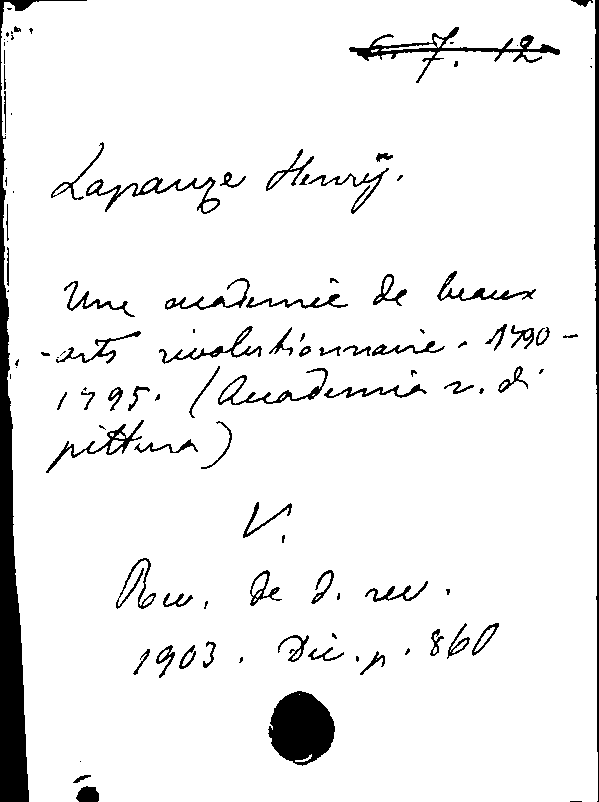 6. 7. 12
Lapauze Henry.
Une academie de beaux
-arts rivolutionnaire. 1790-
1795. (Accademia r. di
pittura)
V.
Rev. de d. rev.
1903. Dic. p. 860